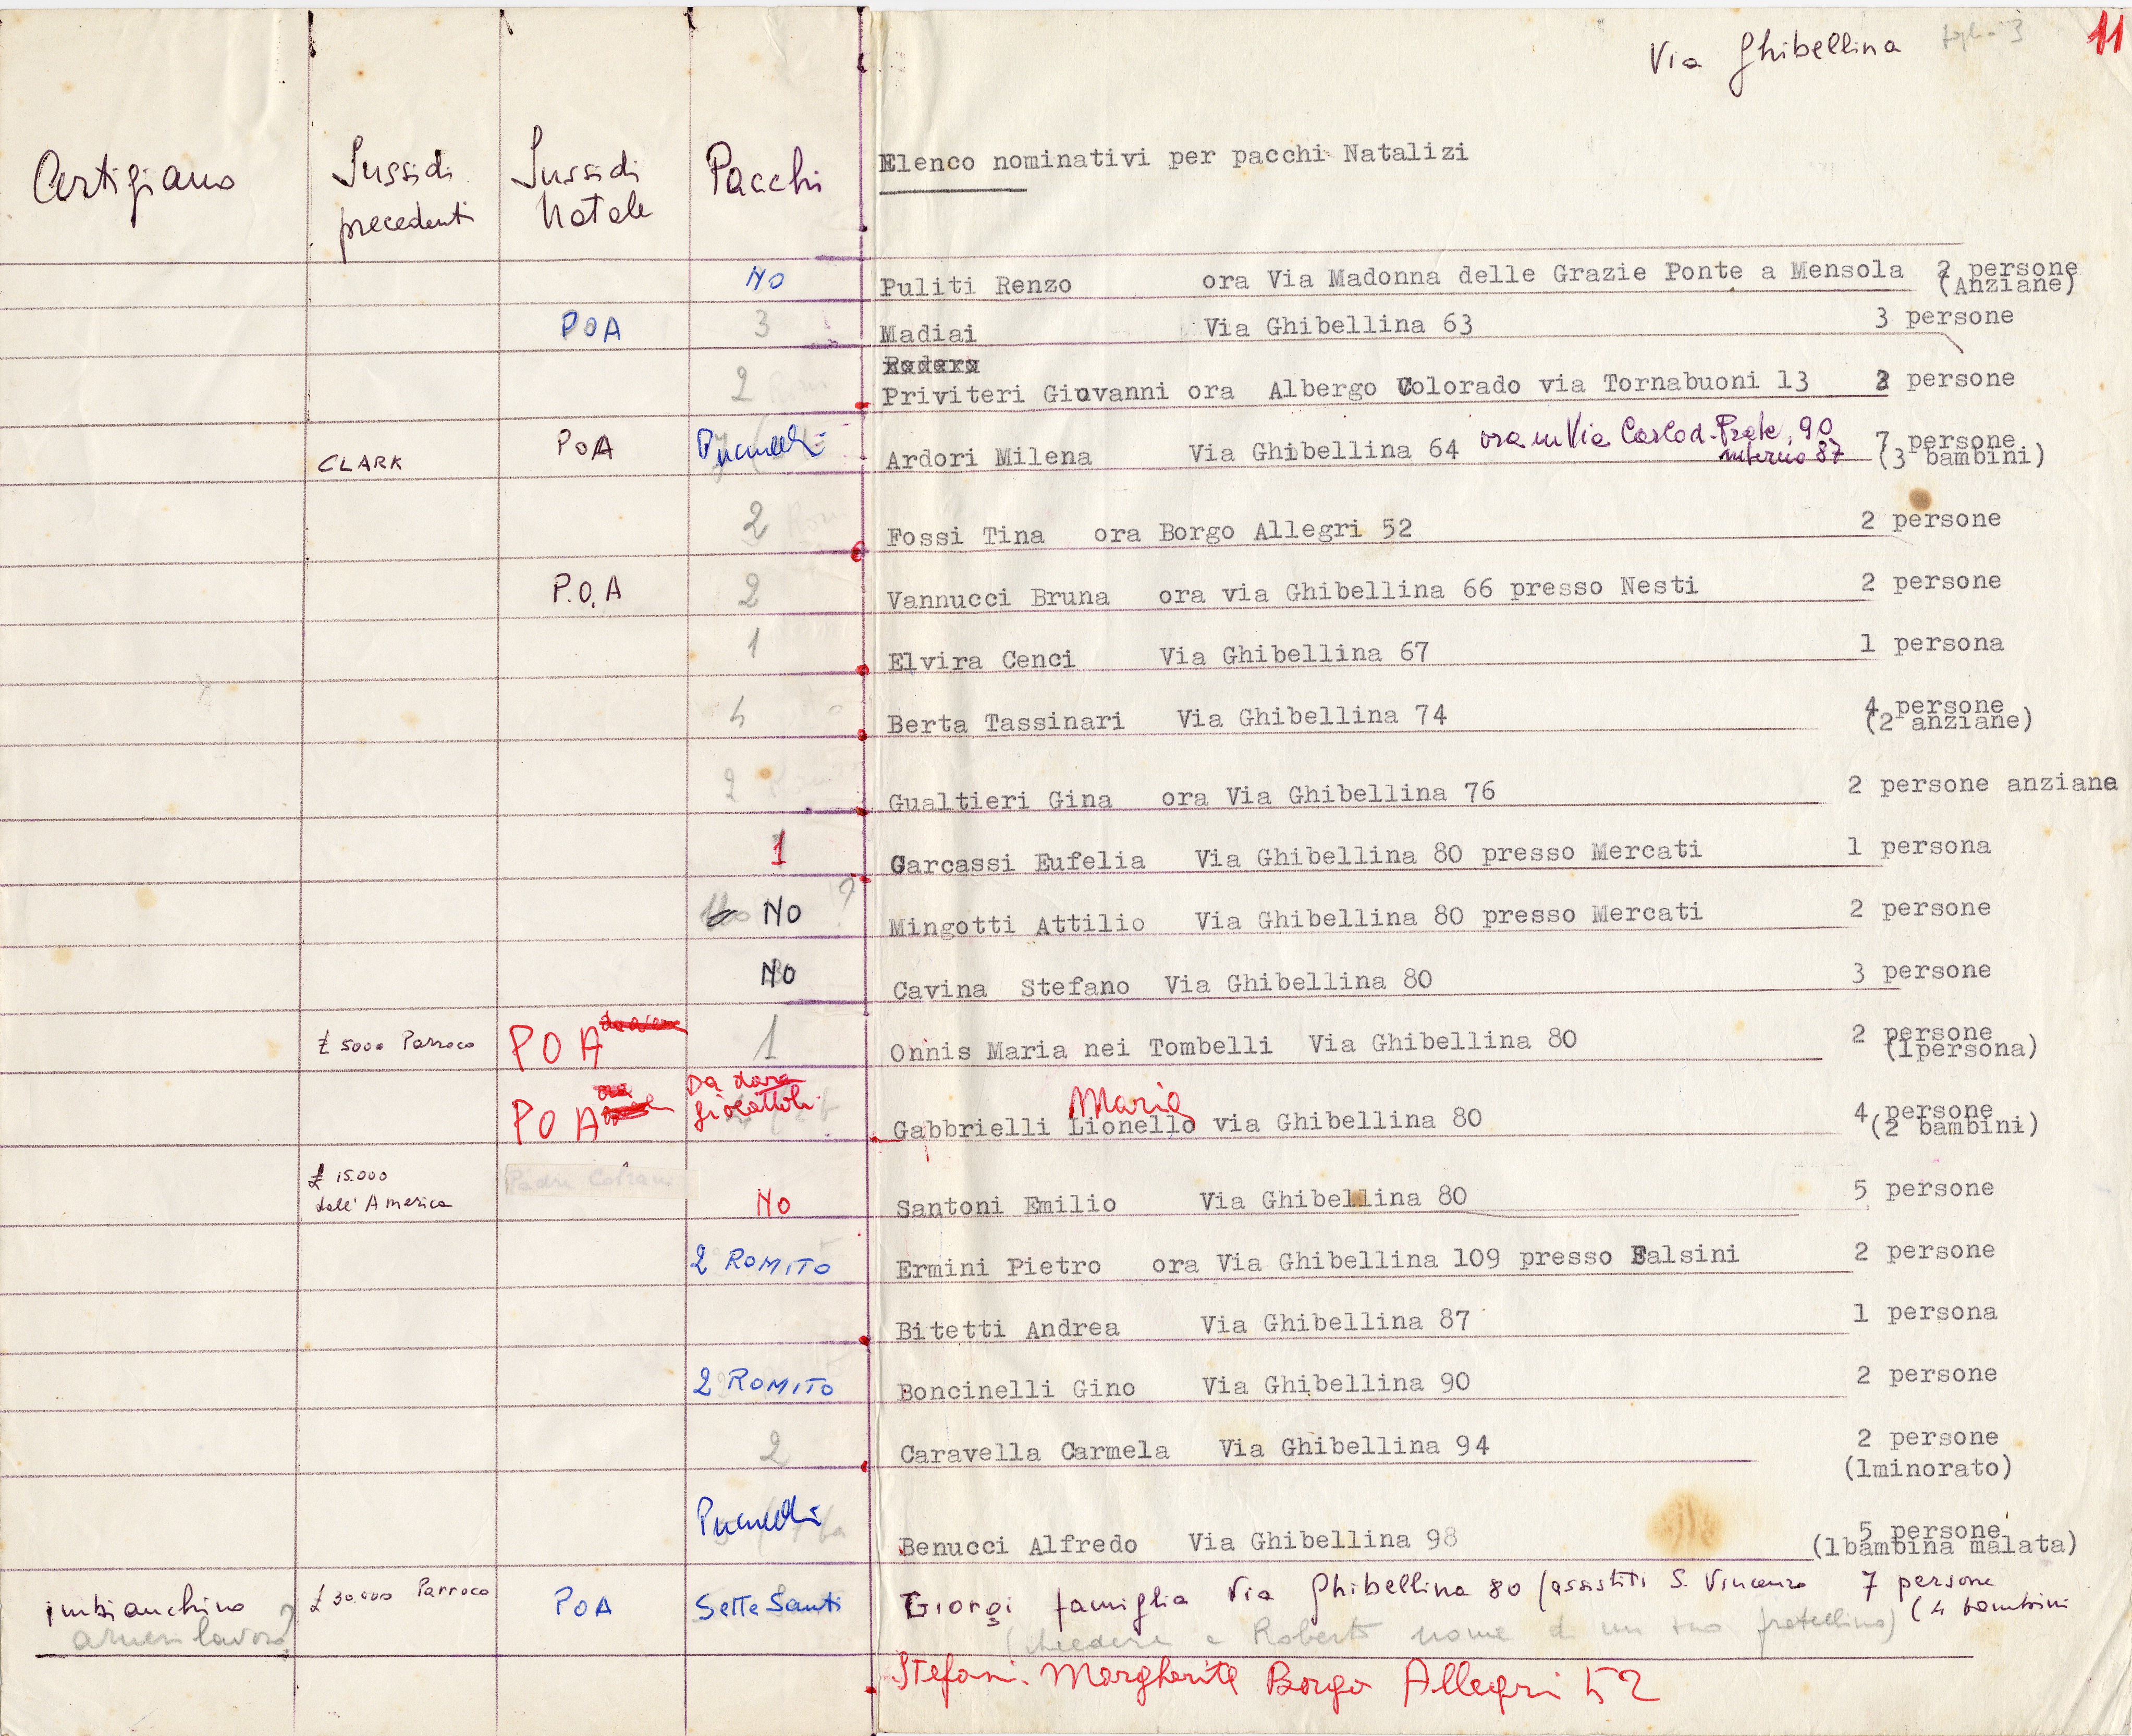 Via Ghibellina foglio 3 11
Artigiano Sussidi precedenti Sussidi Natale Pacchi Elenco nominativi per pacchi Natalizi
NO Puliti Renzo ora Via Madonna delle Grazie Ponte a Mensola 2 persone
(Anziane)
POA 3 Madiai Via Ghibellina 63 3 persone
2 Priviteri Giovanni ora Albergo Colorado via Tornabuoni 13 2 persone
CLARK POA Ardori Milena Via Ghibellina 64 ora in Via Carlo d. Prete, 90 7 persone
interno 87 (3 bambini)
2 Fossi Tina ora Borgo Allegri 52 2 persone
P.O.A 2 Vannucci Bruna ora via Ghibellina 66 presso Nesti 2 persone
1 Elvira Cenci Via Ghibellina 67 1 persona
4 Berta Tassinari Via Ghibellina 74 4 persone
(2 anziane)
2 Gualtieri Gina ora Via Ghibellina 76 2 persone anziane
1 Garcassi Eufelia Via Ghibellina 80 presso Mercati 1 persona
NO ? Mingotti Attilio Via Ghibellina 80 presso Mercati 2 persone
NO Cavina Stefano Via Ghibellina 80 3 persone
£ 5000 Parroco POA 1 Onnis Maria nei Tombelli Via Ghibellina 80 2 persone
(1persona)
POA Da dare giocattoli Maria
Gabbrielli Lionello via Ghibellina 80 4 persone
(2 bambini)
£ 15.000
dall'America NO Santoni Emilio Via Ghibellina 80 5 persone
2 ROMITO Ermini Pietro ora Via Ghibellina 109 presso Falsini 2 persone
Bitetti Andrea Via Ghibellina 87 1 persona
2 ROMITO Boncinelli Gino Via Ghibellina 90 2 persone
2 Caravella Carmela Via Ghibellina 94 2 persone
(1minorato)
Benucci Alfredo Via Ghibellina 98 5 persone
(1bambina malata)
imbianchino £ 30.000 Parroco POA Sette Santi Giorgi famiglia Via Ghibellina 80 (assistiti S. Vincenzo 7 persone
(4 bambini
arnesi lavoro? (chiedere a Roberto nome di un suo fratellino)
Stefani Margherita Borgo Allegri 52